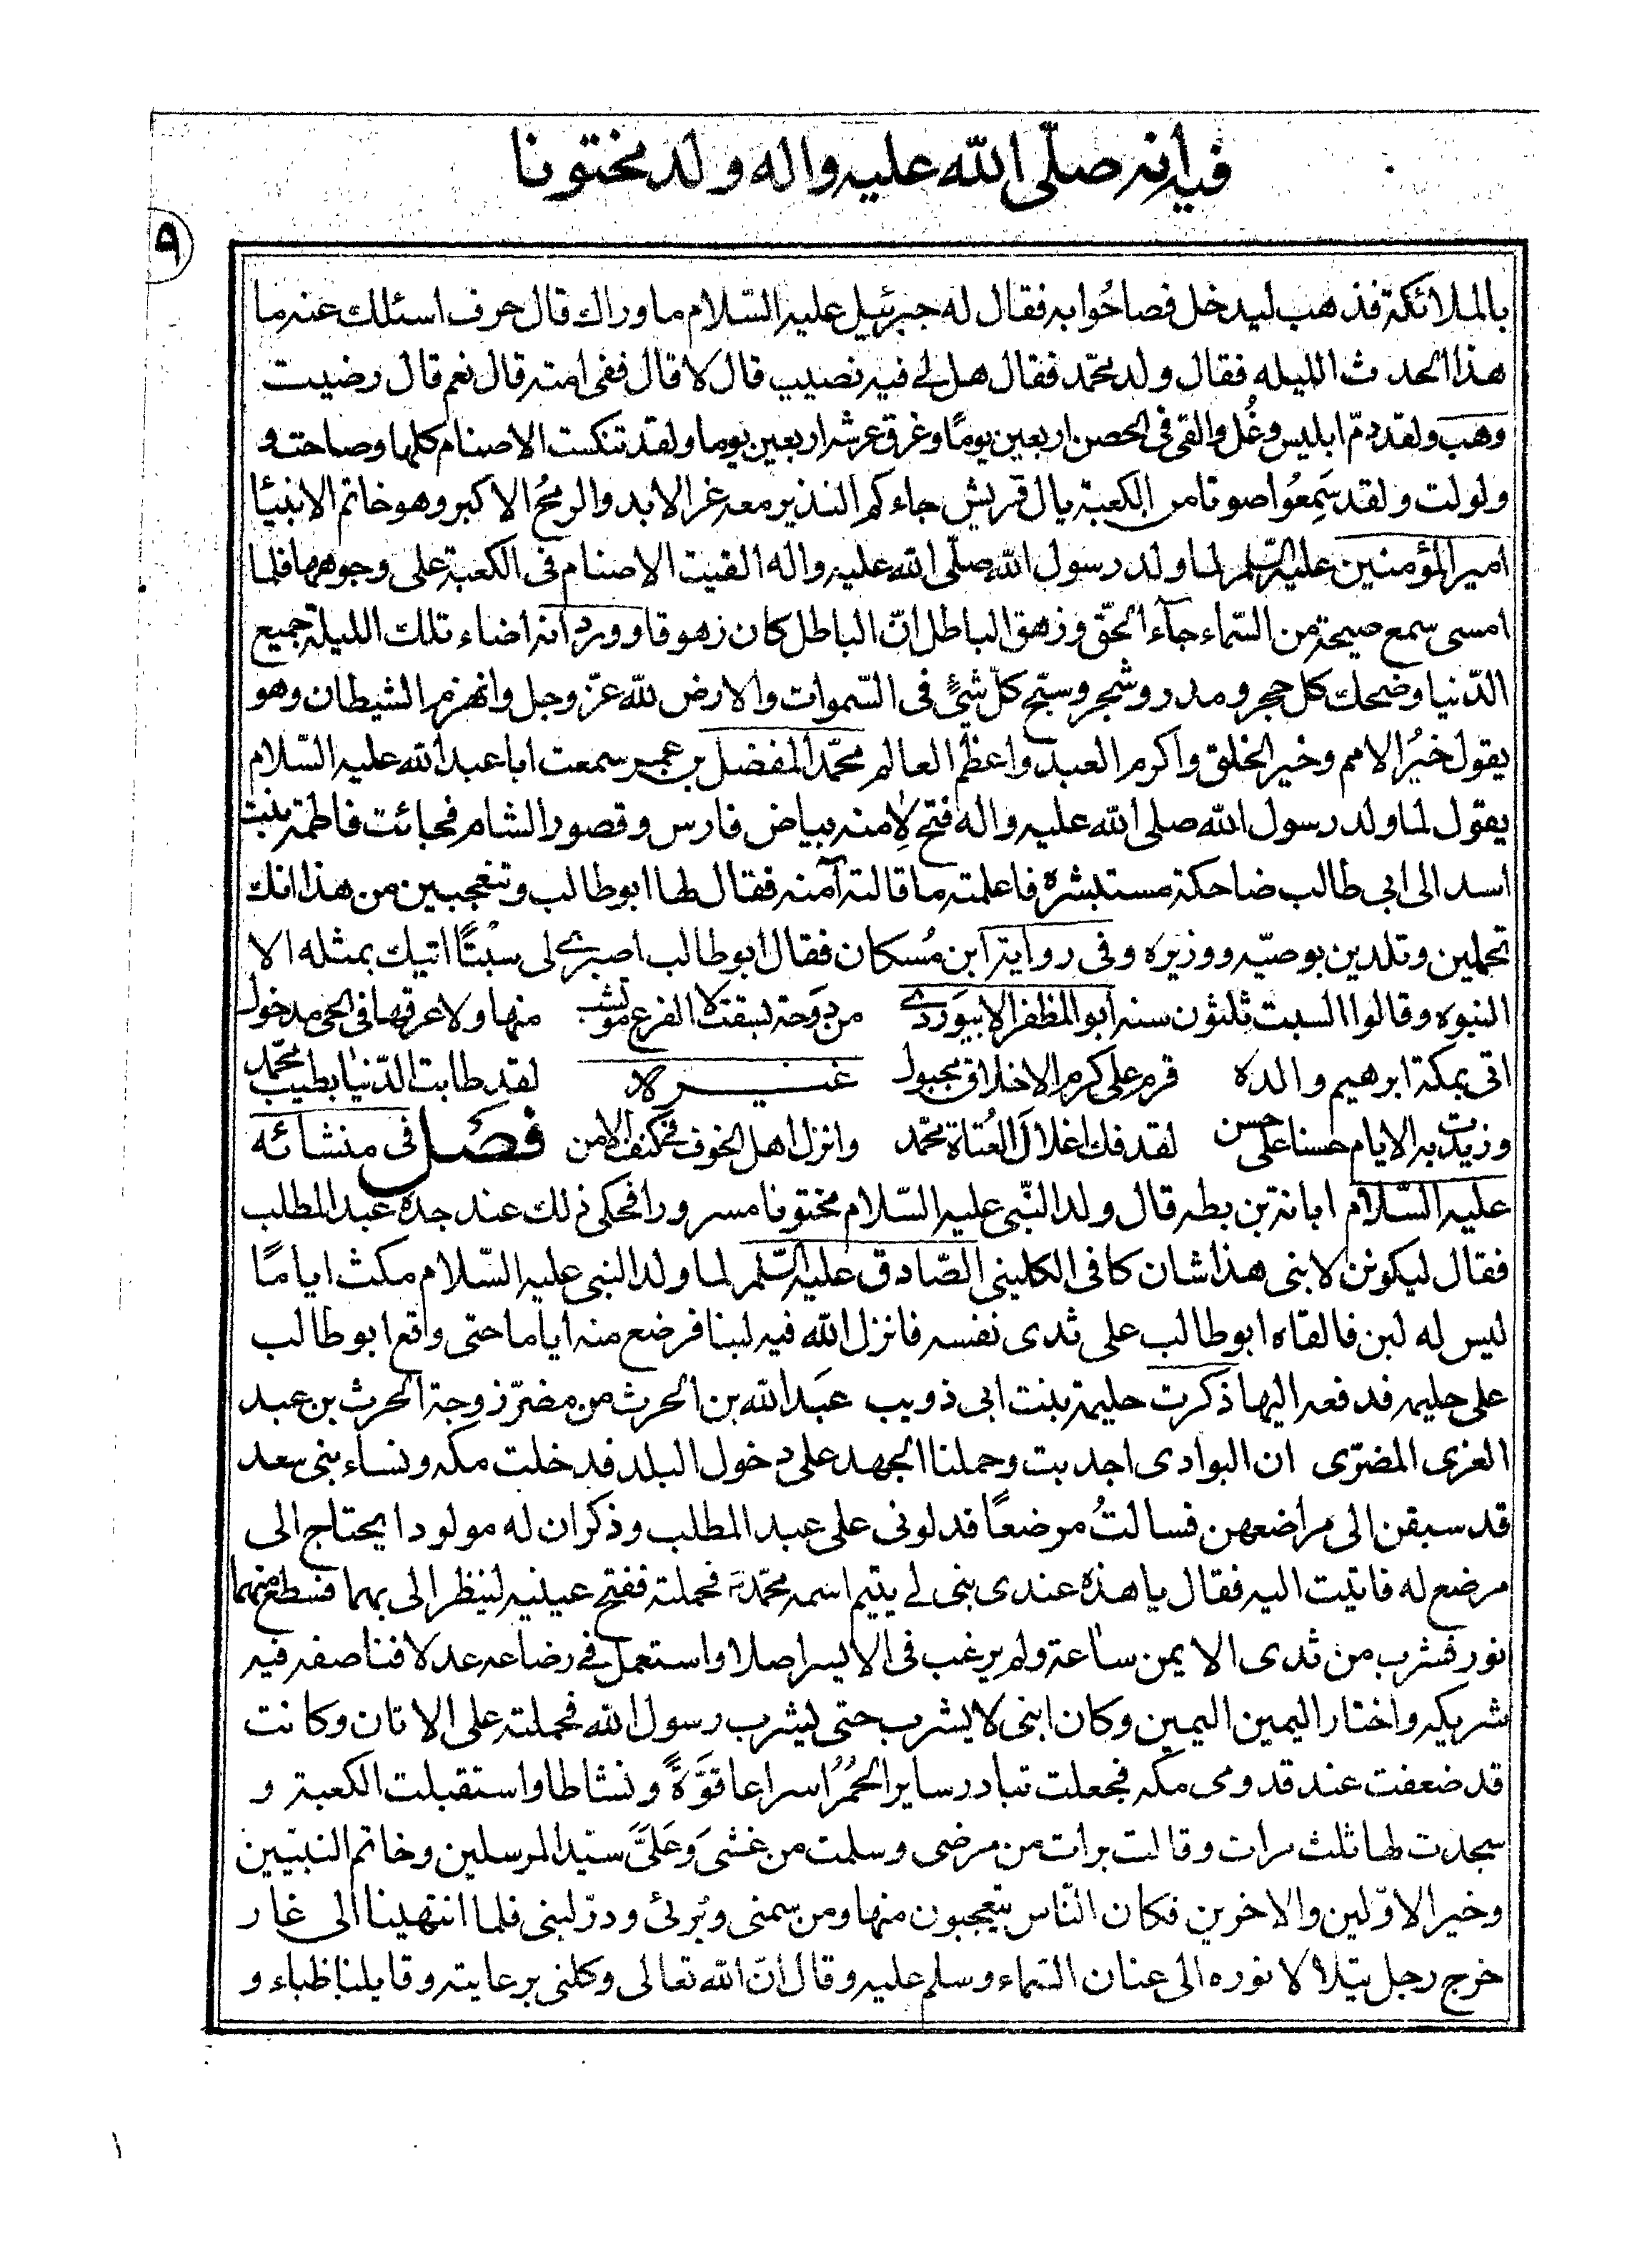 فيه أنه صلّى الله عليه واله ولد مختونا
٩
بالملائكة فذهب ليدخل فصاحُوا به فقال له جبرئيل عليه السّلام ما وراك قال حرف اسئلك عنه ما
هذا الحدث الليله فقال ولد محمّد فقال هل لي فيه نصيب قال لا قال ففى امته قال نعم قال رضيت
وهب ولقد ذمّ ابليس وغُل والقى فى الحصن اربعين يومًا وغرق عرشه اربعين يوما ولقد تنكست الاصنام كلها وصاحت و
ولولت ولقد سَمِعُوا صوتا من الكعبة يال قريش جاءكم النذير معه عز الابد والربحُ الاكبر وهو خاتم الانبيا
امير المؤمنين عليه السّلم لما ولد رسول الله صلّى الله عليه واله القيت الاصنام فى الكعبة على وجوهها فلما
امسى سمع صيحة من السّماء جآء الحقّ وزهق الباطل انّ الباطل كان زهوقا وورد أنه اضاء تلك الليلة جميع
الدّنيا وضحك كل حجر ومدر وشجر وسبّح كلّ شئٍ فى السّموات والارض لله عزّ وجل وانهزم الشيطان وهو
يقول خيرُ الامم وخير الخلق واكرم العبيد واعظم العالم محمّد المفضل بن عمير سمعت ابا عبد الله عليه السّلام
يقول لما ولد رسول الله صلى الله عليه واله فتح لِامنه بياض فارس وقصور الشام فجائت فاطمة بنت
اسد الى ابى طالب ضاحكة مستبشره فاعلمته ما قالته آمنه فقال لها ابو طالب وتتعجبين من هذا انك
تحملين وتلدين بوصيّه ووزيره وفى رواية ابن مُسكان فقال ابو طالب اصبرى لى سبْتًا اتيك بمثله الا
النبوه وقالوا السبت ثلثون سنه أبو المظفر الابيوَردى من دَوحة بسقت لا الفرع مؤتشب منها ولا عرقها فى الحى مدخول
اتى بمكة ابرهيم والده قرم على كرم الاخلاق مجبول غيره لقد طابت الدّنيا بطيب محمّد
وزيدت به الايام حسنا على حسن لقد فك اغلال العُتاة محمّد وانزل اهل الخوف فى كنف الامن فصل فى منشائه
عليه السّلام ابانة بن بطه قال ولد النّبى عليه السّلام مختونا مسرورا فحكى ذلك عند جدّه عبد المطلب
فقال ليكونن لابنى هذا شان كافى الكلينى الصّادق عليه السّلم لما ولد النبى عليه السّلام مكث اياما
ليس له لبن فالقاه ابو طالب على ثدى نفسه فانزل الله فيه لبنا فرضع منه اياما حتى واقع ابو طالب
على حليمه فدفعه اليها ذكرت حليمة بنت ابى ذويب عبَد الله بن الحرث من مضرّ زوجة الحرث بن عبد
العزى المضرّى ان البوادى اجدبت وحملنا الجهد على دخول البلد فدخلت مكه ونساء بنى سعد
قد سبقن الى مراضعهن فسالتُ مرضعًا فدلونى على عبد المطلب وذكر ان له مولودا يحتاج الى
مرضع له فاتيت اليه فقال يا هذه عندى بنى لى يتيم اسمه محمّد فحملته ففتح عينيه لينظر الى بهما فسطع منهما
نور فشرب من ثدى الايمن ساعة ولم يرغب فى الايسر اصلا واستعمل فى رضاعه عدلا فناصف فيه
شريكه واختار اليمين اليمين وكان ابنى لا يشرب حتى يشرب رسول الله فحملته على الاتان وكانت
قد ضعفت عند قدومى مكه فجعلت تبادر ساير الحُمُر اسراعا قوَّةً ونشاطا واستقبلت الكعبة و
سجدت لها ثلث مرات وقالت برات من مرضى وسلمت من غشىَ وعَلىََّ سيّد المرسلين وخاتم النبيّين
وخير الاوّلين والاخرين فكان النّاس يتعجبون منها ومن سمنى وبُرئى ودرّ لبنى فلما انتهينا الى غار
خرج رجل يتلالا نوره الى عنان السّماء وسلم عليه وقال انّ الله تعالى وكلنى برعايته وقابلنا ظباء و
١